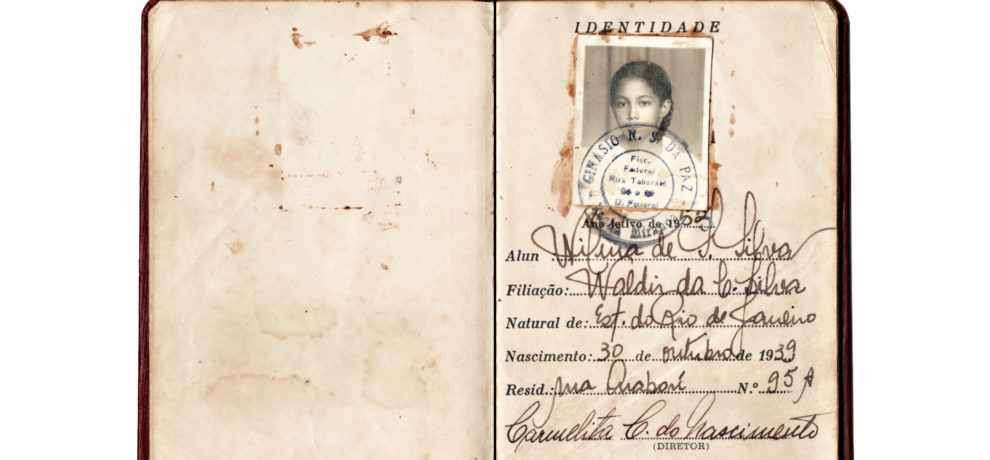 IDENTIDADE
GINÁSIO N. S. DA PAZ
Fisc.
Federal
Rua
D. Federal
Ano letivo de 1952
Alun : Wilma de S. Silva
Filiação: Waldir da C. Silva
Natural de: Est. do Rio de Janeiro
Nascimento: 30 de outubro de 1939
Resid.: rua N.º 95 A
Carmelita C. do Nascimento
(DIRETOR)